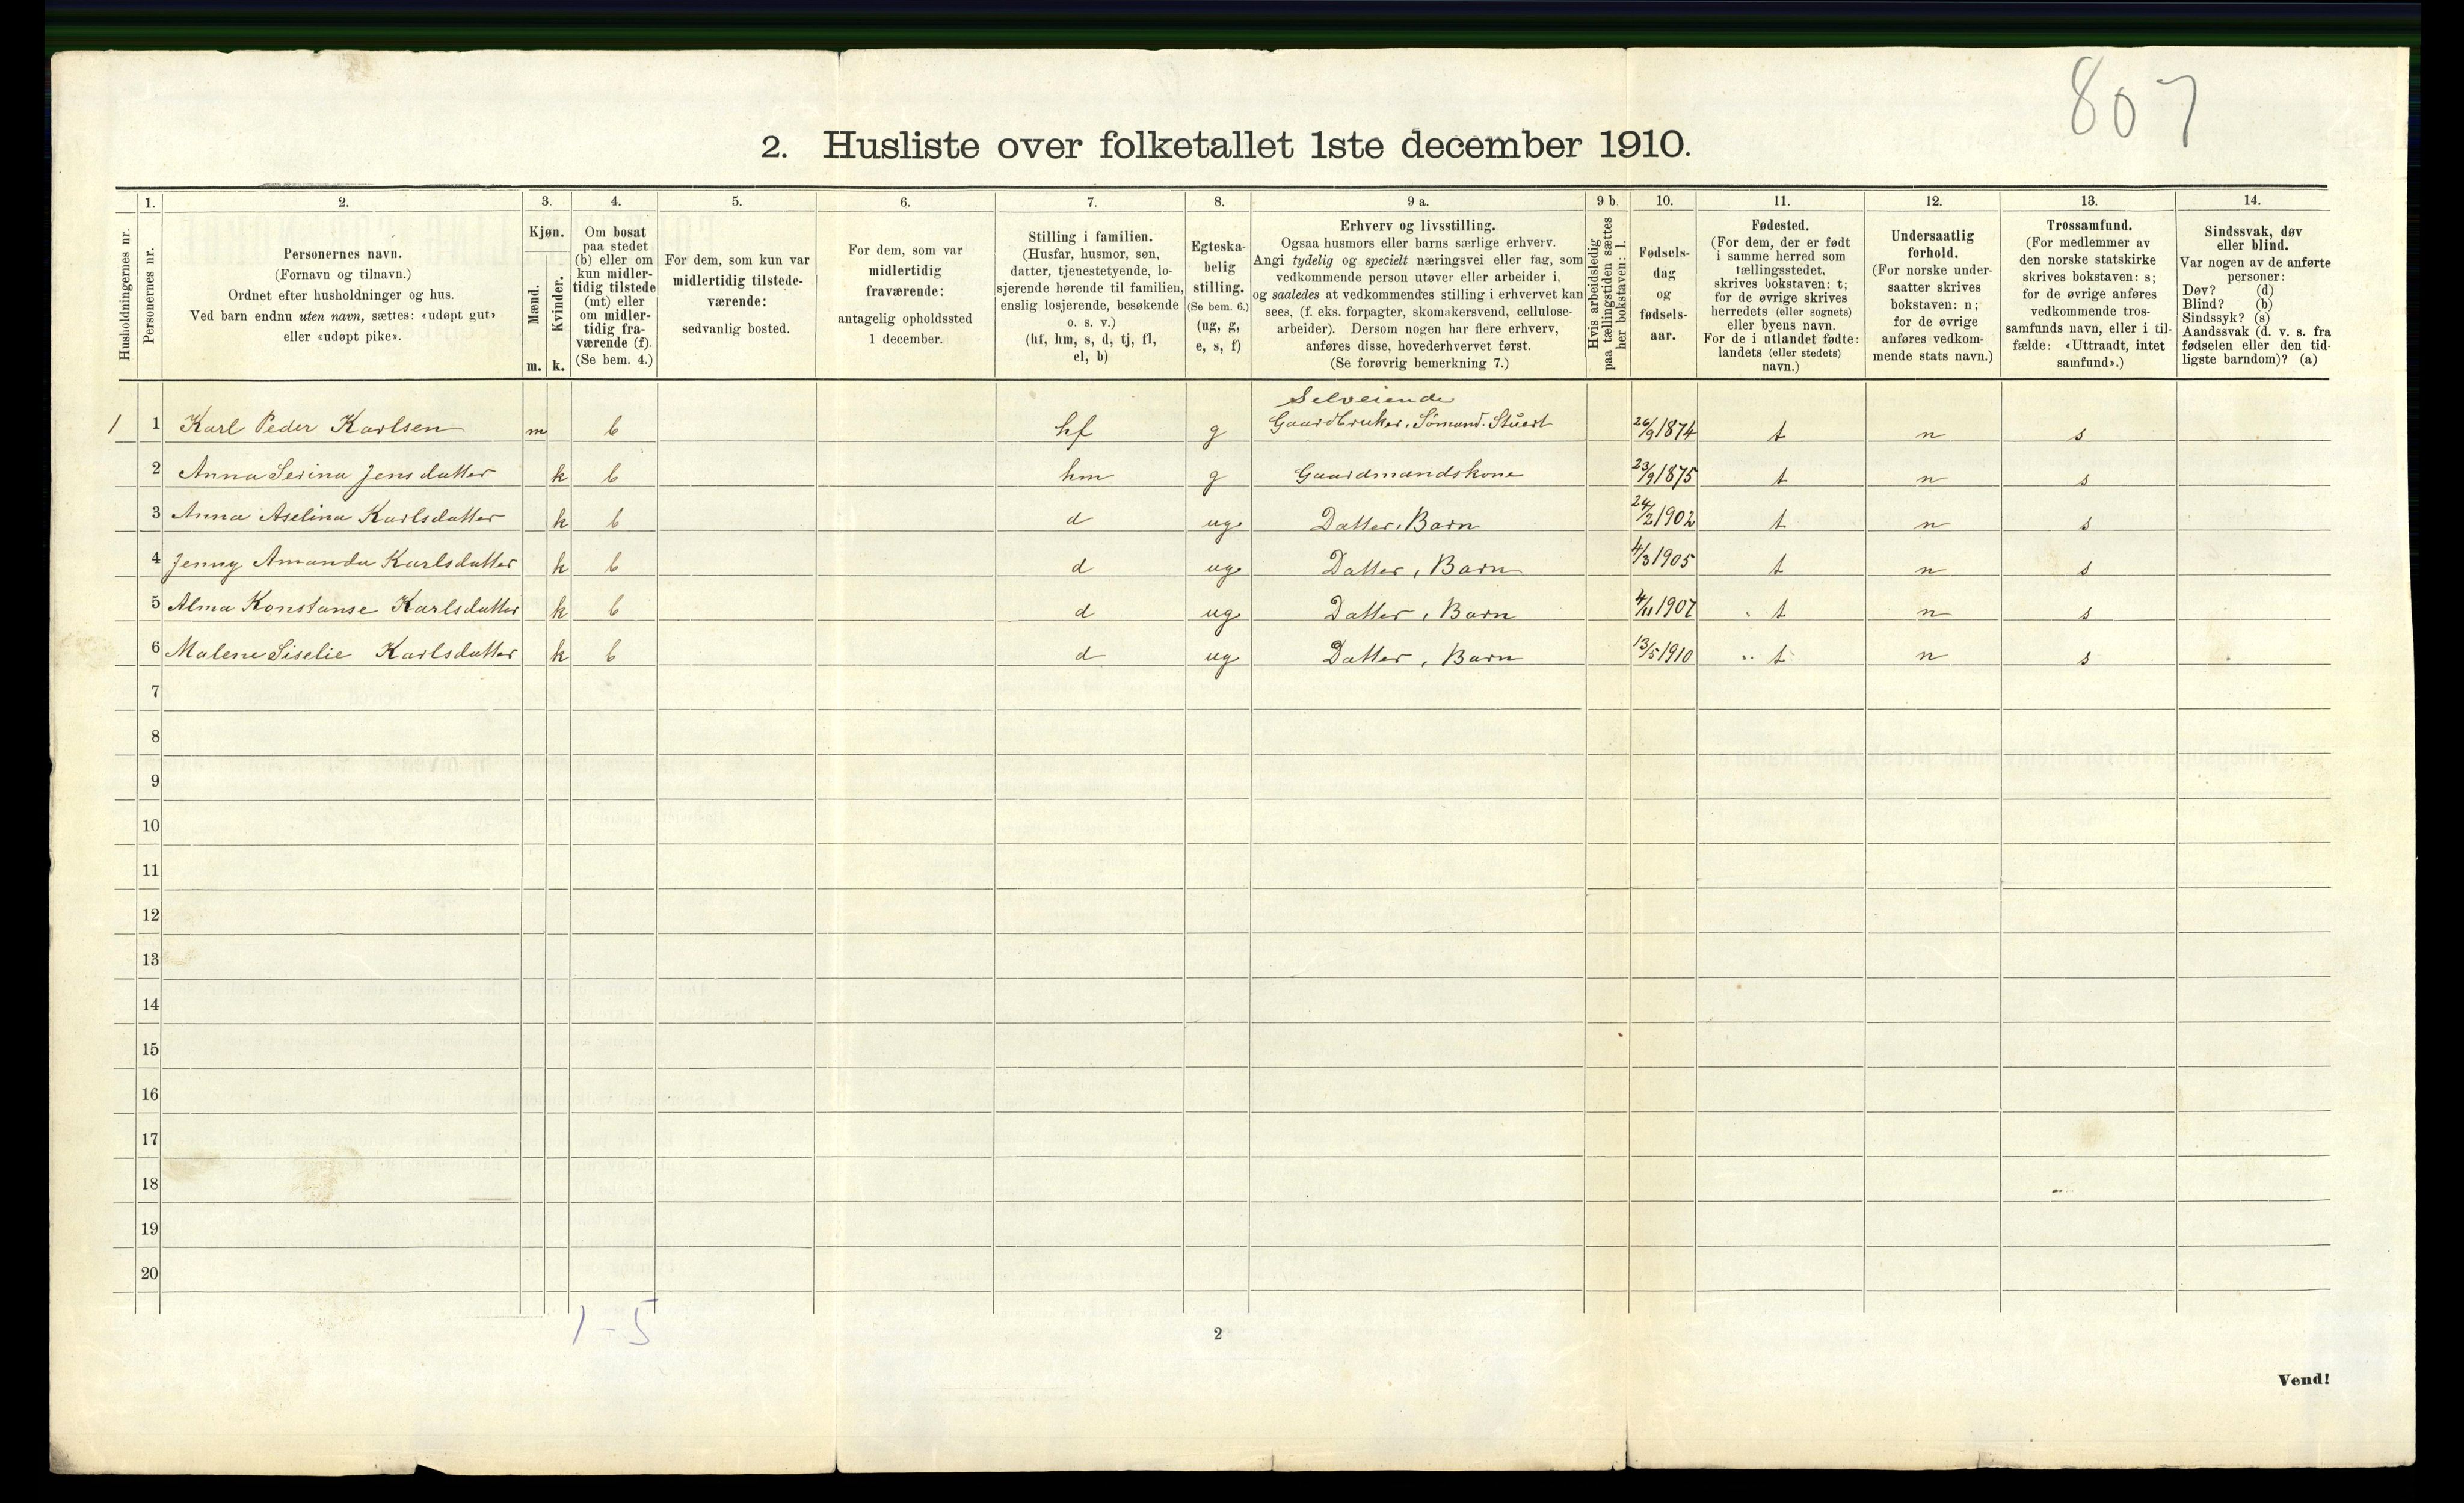 807
2. Husliste over folketallet 1ste december 1910.
Husholdningernes nr.
1.
Personernes nr.
2.
Personernes navn.
(Fornavn og tilnavn.)
Ordnet efter husholdninger og hus.
Ved barn endnu uten navn, sættes: «udøpt gut»
eller «udøpt pike».
3.
Kjøn.
Mænd.
Kvinder.
m. k.
4.
Om bosat
paa stedet
(b) eller om
kun midler-
tidig tilstede
(mt) eller
om midler-
tidig fra-
værende (f).
(Se bem. 4.)
5.
For dem, som kun var
midlertidig tilstede-
værende:
sedvanlig bosted.
6.
For dem, som var
midlertidig
fraværende:
antagelig opholdssted
1 december.
7.
Stilling i familien.
(Husfar, husmor, søn,
datter, tjenestetyende, lo-
sjerende hørende til familien,
enslig losjerende, besøkende
o. s. v.)
(hf, hm, s, d, tj, fl,
el, b)
8.
Egteska-
belig
stilling.
(Se bem. 6.)
(ug, g,
e, s, f)
9 a.
Erhverv og livsstilling.
Ogsaa husmors eller barns særlige erhverv.
Angi tydelig og specielt næringsvei eller fag, som
vedkommende person utøver eller arbeider i,
og saaledes at vedkommendes stilling i erhvervet kan
sees, (f. eks. forpagter, skomakersvend, cellulose-
arbeider). Dersom nogen har flere erhverv,
anføres disse, hovederhvervet først.
(Se forøvrig bemerkning 7.)
9 b.
Hvis arbeidsledig
paa tællingstiden sættes
her bokstaven: l.
10.
Fødsels-
dag
og
fødsels-
aar.
11.
Fødested.
(For dem, der er født
i samme herred som
tællingsstedet,
skrives bokstaven: t;
for de øvrige skrives
herredets (eller sognets)
eller byens navn.
For de i utlandet fødte:
landets (eller stedets)
navn.)
12.
Undersaatlig
forhold.
(For norske under-
saatter skrives
bokstaven: n;
for de øvrige
anføres vedkom-
mende stats navn.)
13.
Trossamfund.
(For medlemmer av
den norske statskirke
skrives bokstaven: s;
for de øvrige anføres
vedkommende tros-
samfunds navn, eller i til-
fælde: «Uttraadt, intet
samfund».)
14.
Sindssvak, døv
eller blind.
Var nogen av de anførte
personer:
Døv? (d)
Blind? (b)
Sindssyk? (s)
Aandssvak (d. v. s. fra
fødselen eller den tid-
ligste barndom)? (a)
Selveiende
1 1 Karl Peder Karlsen m b hf g Gaardbruker, Sømand. Stuert 26/9 1874 t n s
2 Anna Serina Jensdatter k b hm g Gaardmandskone 23/9 1875 t n s
3 Anna Aselina Karlsdatter k b d ug Datter, Barn 24/2 1902 t n s
4 Jenny Amanda Karlsdatter k b d ug Datter, Barn 4/3 1905 t n s
5 Alma Konstanse Karlsdatter k b d ug Datter, Barn 4/11 1907 t n s
6 Malene Siselie Karlsdatter k b d ug Datter, Barn 13/5 1910 t n s
7
8
9
10
11
12
13
14
15
16
17
18
19
20
1-5
2
Vend!